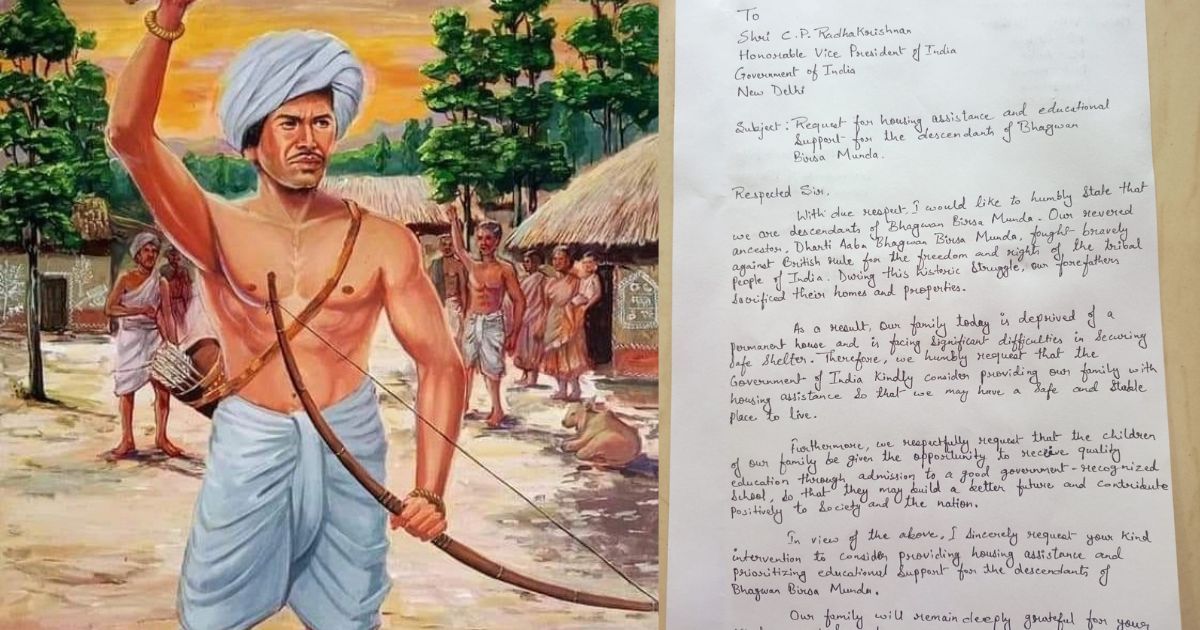 To
Shri C.P. Radhakrishnan
Honorable Vice President of India
Government of India
New Delhi
Subject : Request for housing assistance and educational
Support for the descendants of Bhagwan
Birsa Munda.
Respected Sir,
With due respect, I would like to humbly state that
we are descendants of Bhagwan Birsa Munda. Our revered
ancestor, Dharti Aaba Bhagwan Birsa Munda, fought bravely
against British rule for the freedom and rights of the tribal
people of India. During this historic struggle, our forefathers
sacrificed their homes and properties.
As a result, our family today is deprived of a
permanent house and is facing significant difficulties in securing
safe shelter. Therefore, we humbly request that the
Government of India kindly consider providing our family with
housing assistance so that we may have a safe and stable
place to live.
Furthermore, we respectfully request that the children
of our family be given the opportunity to receive quality
education through admission to a good government-recognized
school, so that they may build a better future and contribute
positively to society and the nation.
In view of the above, I sincerely request your kind
intervention to consider providing housing assistance and
prioritizing educational support for the descendants of
Bhagwan Birsa Munda.
Our family will remain deeply grateful for your